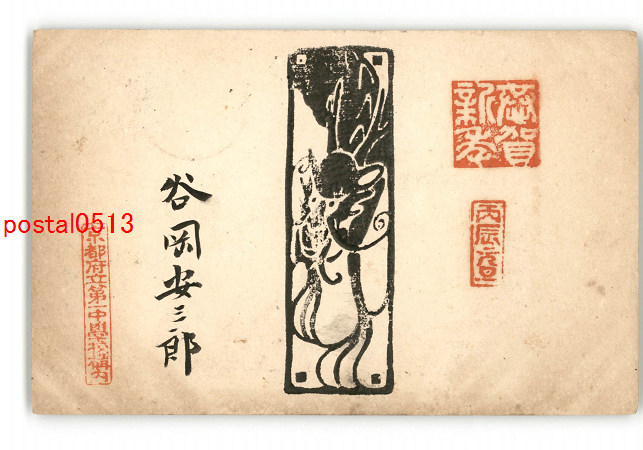 恭賀
新年
丙辰元旦
谷岡安三郎
京都府立第一中學校構内
postal0513